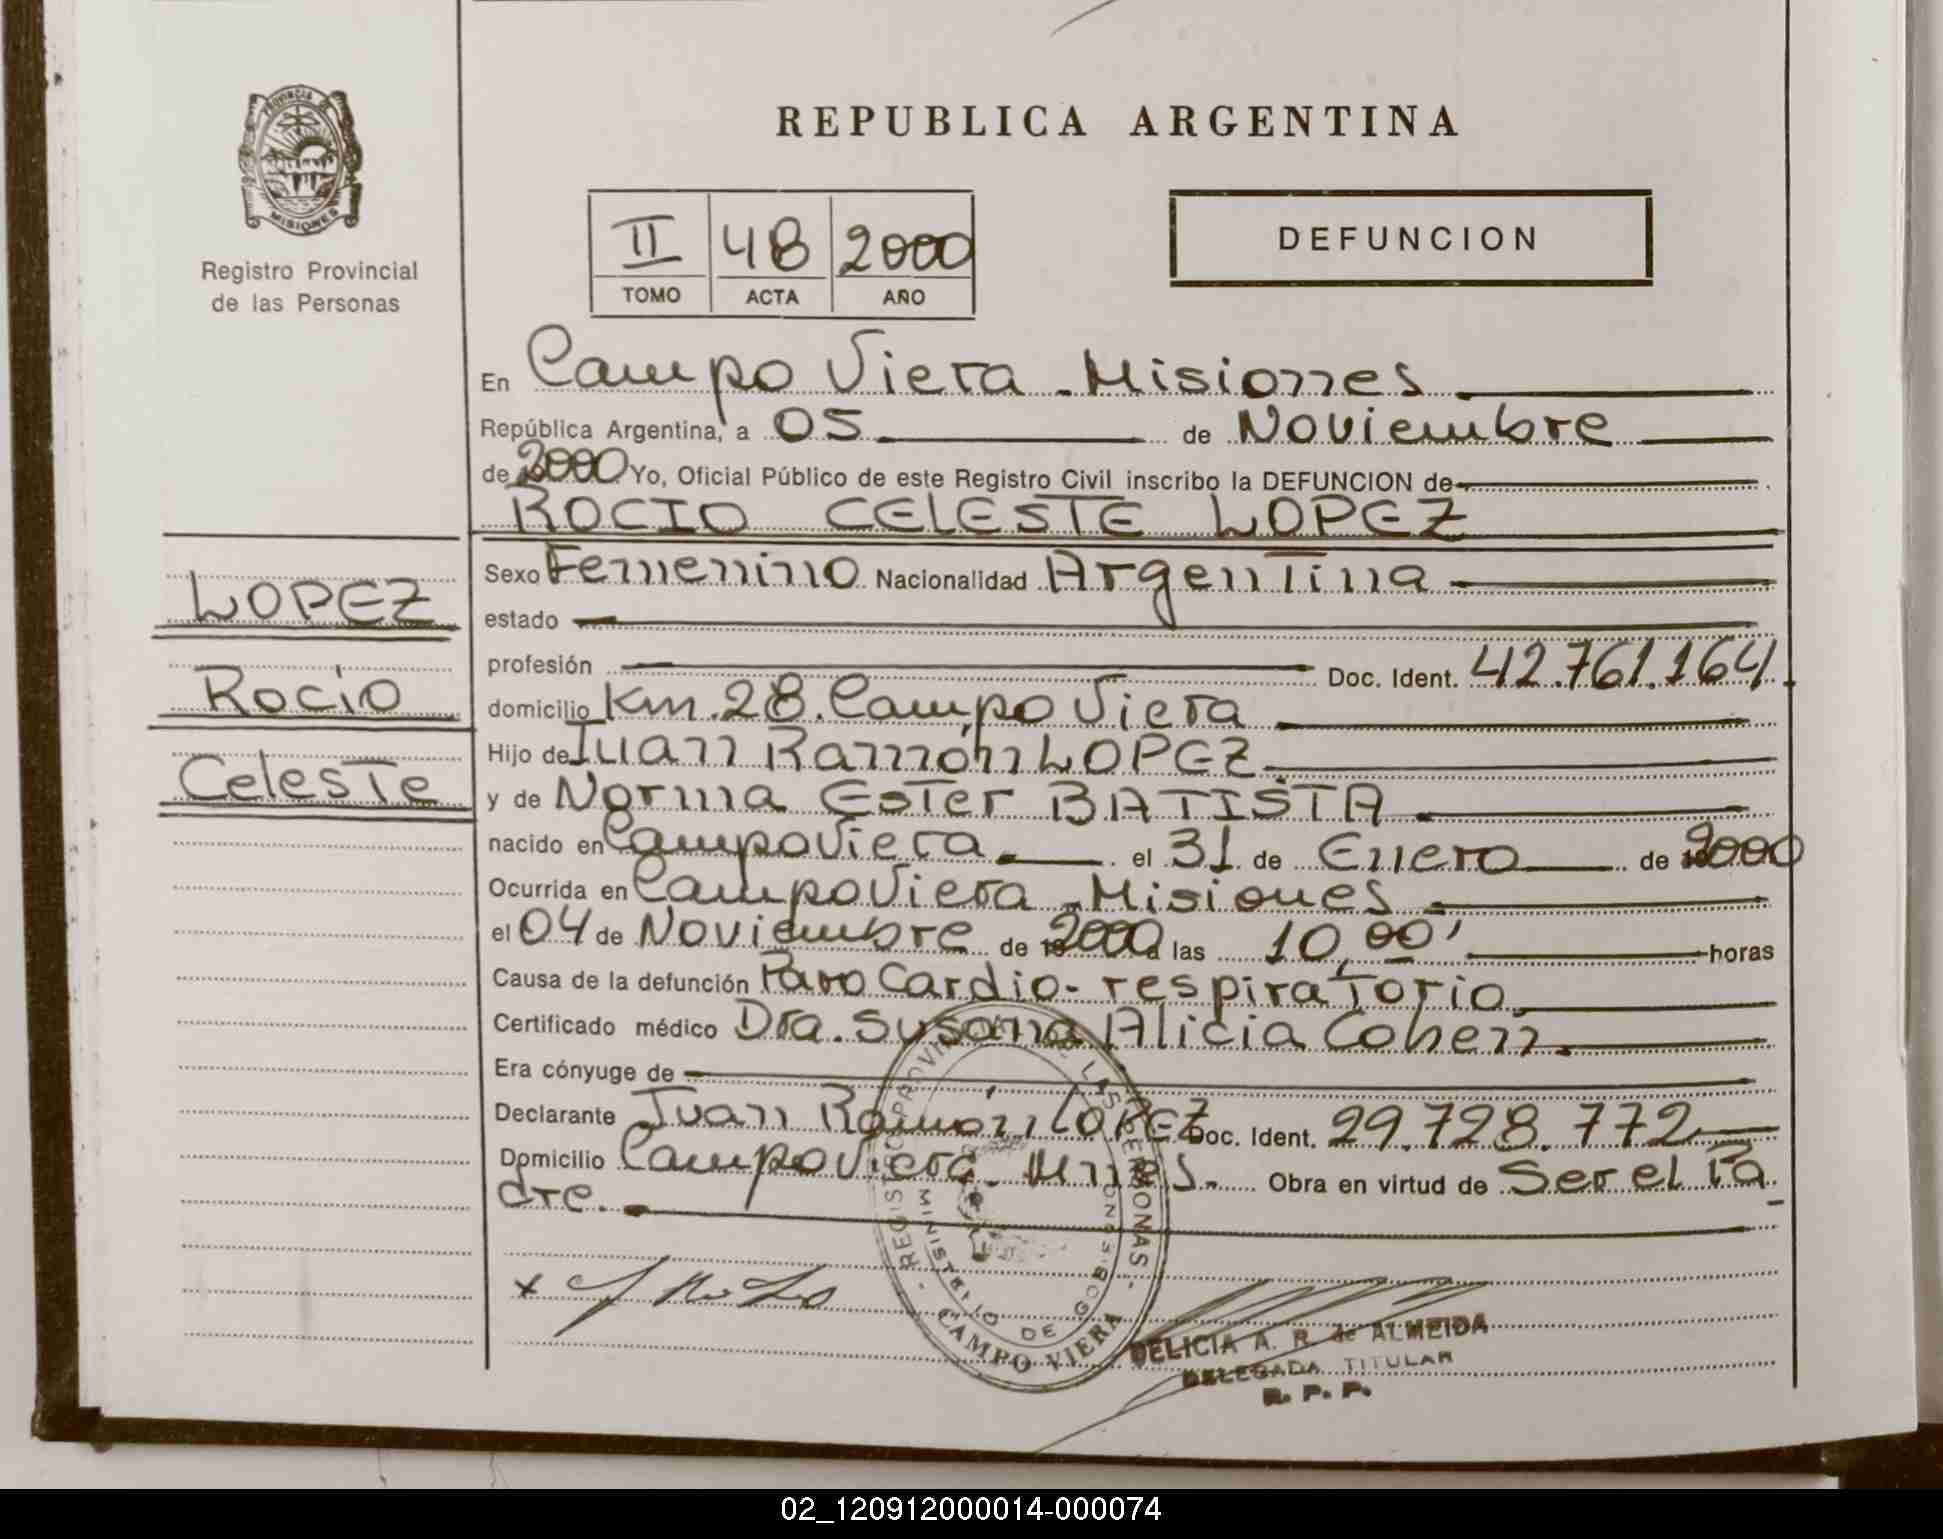 PROVINCIA DE
MISIONES
Registro Provincial
de las Personas
REPUBLICA ARGENTINA
II 48 2000
TOMO ACTA AÑO
DEFUNCION
En Campo Viera - Misiones
República Argentina, a 05 de Noviembre
de 2000 Yo, Oficial Público de este Registro Civil inscribo la DEFUNCION de
ROCIO CELESTE LOPEZ
LOPEZ
Rocio
Celeste
Sexo Femenino Nacionalidad Argentina
estado
profesión Doc. Ident. 42.761.164
domicilio Km. 28. Campo Viera
Hijo de Juan Ramón LOPEZ
y de Norma Ester BATISTA
nacido en Campo Viera el 31 de Enero de 2000
Ocurrida en Campo Viera - Misiones
el 04 de Noviembre de 2000 a las 10,00' horas
Causa de la defunción Paro Cardio-respiratorio
Certificado médico Dra. Susana Alicia Cohen.
Era cónyuge de
Declarante Juan Ramón LOPEZ Doc. Ident. 29.728.772
Domicilio Campo Viera. Mnes. Obra en virtud de Ser el Pa
dre.
REGISTRO PROVINCIAL DE LAS PERSONAS
MINISTERIO DE GOBIERNO
CAMPO VIERA
DELICIA A. R. de ALMEIDA
DELEGADA TITULAR
R. P. P.
02_120912000014-000074